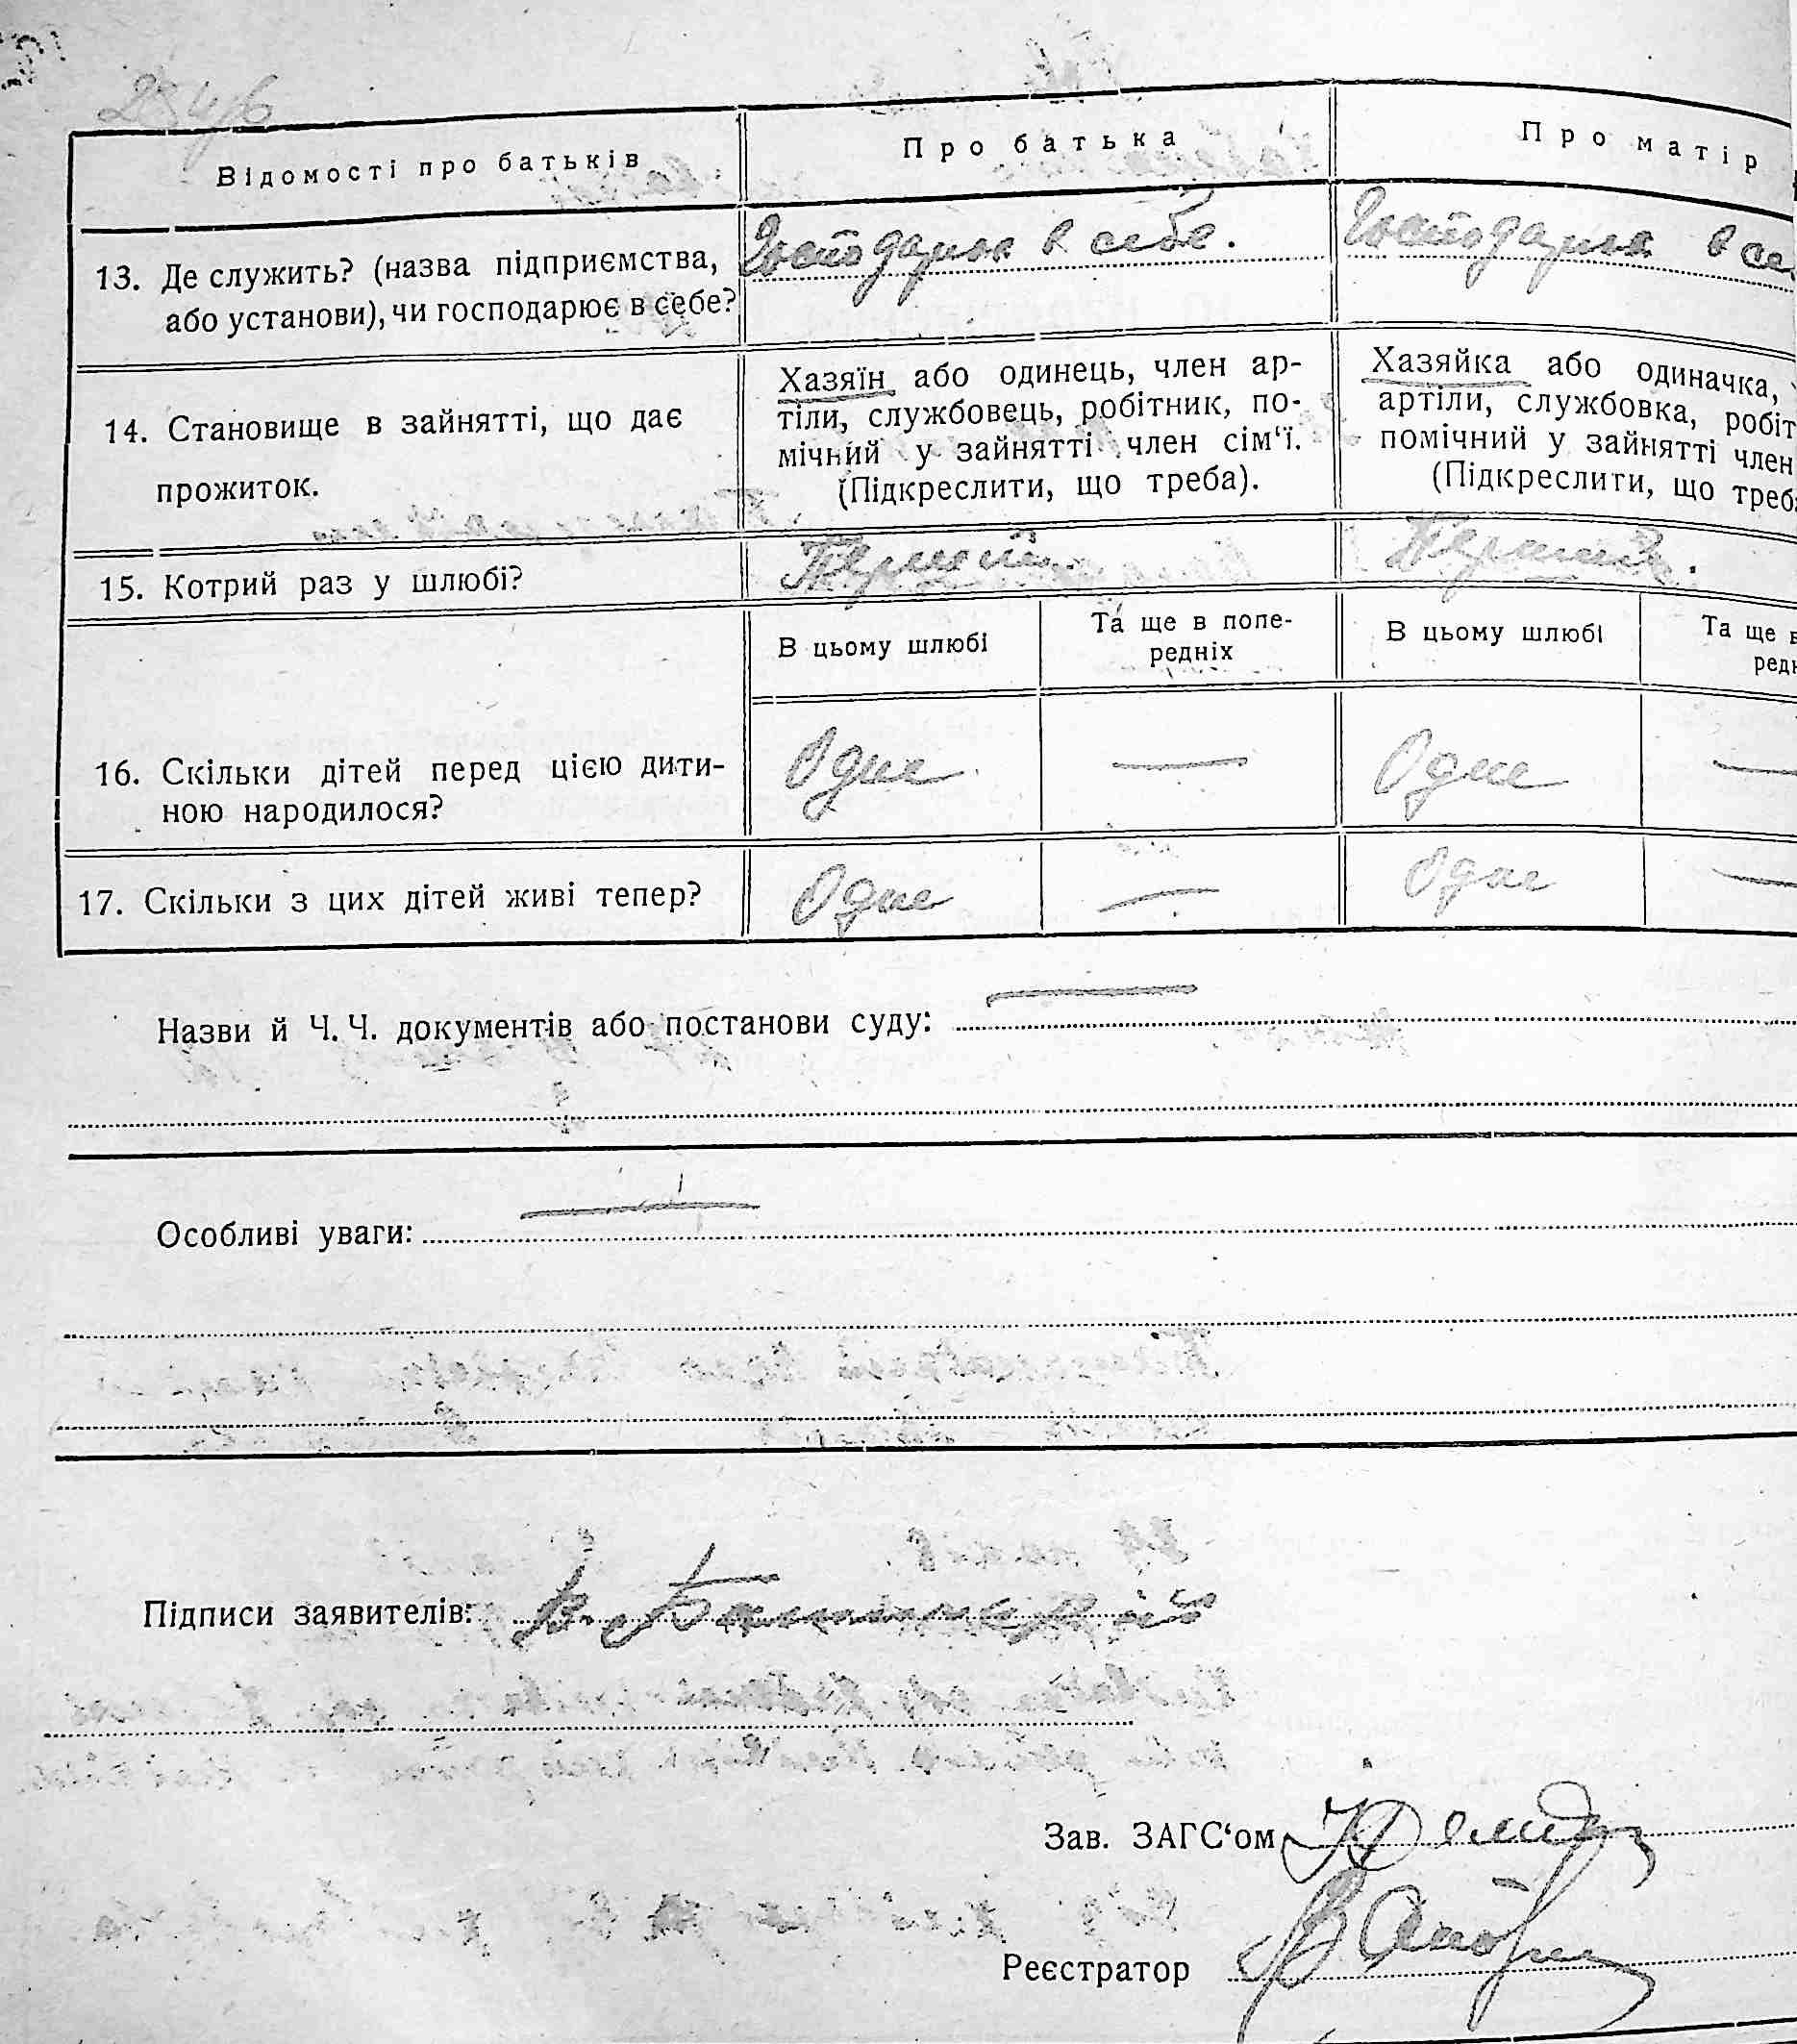 2846
Відомості про батьків
Про батька
Про матір
13. Де служить? (назва підприємства,
або установи), чи господарює в себе?
Господарює в себе.
Господарює в се
14. Становище в зайнятті, що дає
прожиток.
Хазяїн або одинець, член ар-
тіли, службовець, робітник, по-
мічний у зайнятті член сім‘ї.
(Підкреслити, що треба).
Хазяйка або одиначка,
артіли, службовка, робіт
помічний у зайнятті член
(Підкреслити, що треб
15. Котрий раз у шлюбі?
Перший.
В цьому шлюбі
Та ще в попе-
редніх
В цьому шлюбі
Та ще в
ред
16. Скільки дітей перед цією дити-
ною народилося?
Одне —
Одне —
17. Скільки з цих дітей живі тепер?
Одне —
Одне —
Назви й Ч. Ч. документів або постанови суду: —
Особливі уваги: —
Підписи заявителів:
Зав. ЗАГС‘ом
Реєстратор